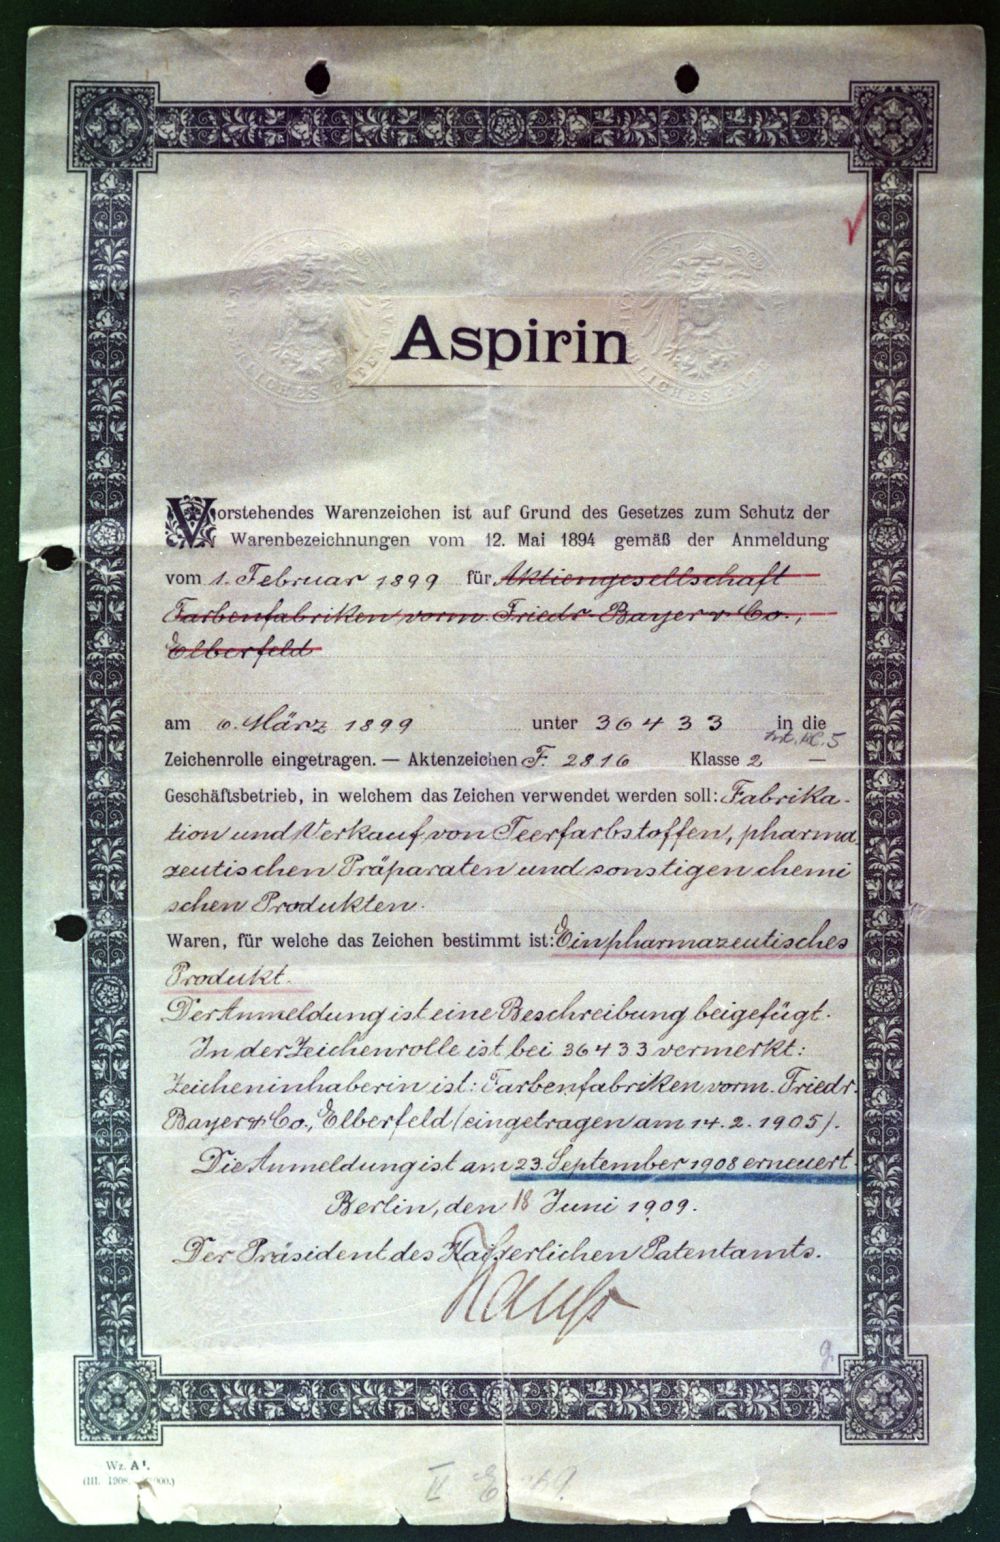 Aspirin
Vorstehendes Warenzeichen ist auf Grund des Gesetzes zum Schutz der
Warenbezeichnungen vom 12. Mai 1894 gemäß der Anmeldung
vom 1. Februar 1899 für Aktiengesellschaft
Farbenfabriken vorm. Friedr. Bayer & Co.,
Elberfeld
am 6. März 1899 unter 36433 in die
Zeichenrolle eingetragen. — Aktenzeichen F. 2816 Klasse 2 —
Geschäftsbetrieb, in welchem das Zeichen verwendet werden soll: Fabrika-
tion und Verkauf von Teerfarbstoffen, pharma-
zeutischen Präparaten und sonstigen chemi
schen Produkten.
Waren, für welche das Zeichen bestimmt ist: Ein pharmazeutisches
Produkt.
Der Anmeldung ist eine Beschreibung beigefügt.
In der Zeichenrolle ist bei 36433 vermerkt:
Zeicheninhaberin ist: Farbenfabriken vorm. Friedr.
Bayer & Co., Elberfeld (eingetragen am 14. 2. 1905).
Die Anmeldung ist am 23. September 1908 erneuert.
Berlin, den 18 Juni 1909.
Der Präsident des Kaiserlichen Patentamts.
Hauß
Wz. A¹.
(III. 1908.